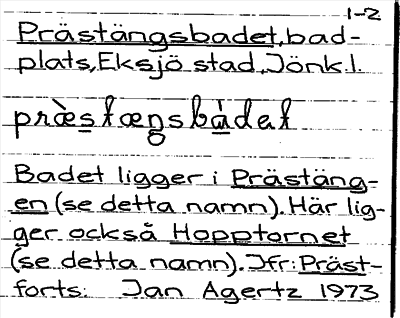 1-2
Prästängsbadet, bad-
plats, Eksjö stad, Jönk.l.
præ̀stæŋsbàdət
Badet ligger i Prästäng-
en (se detta namn). Här lig-
ger också Hopptornet
(se detta namn). Jfr: Präst-
forts: Jan Agertz 1973